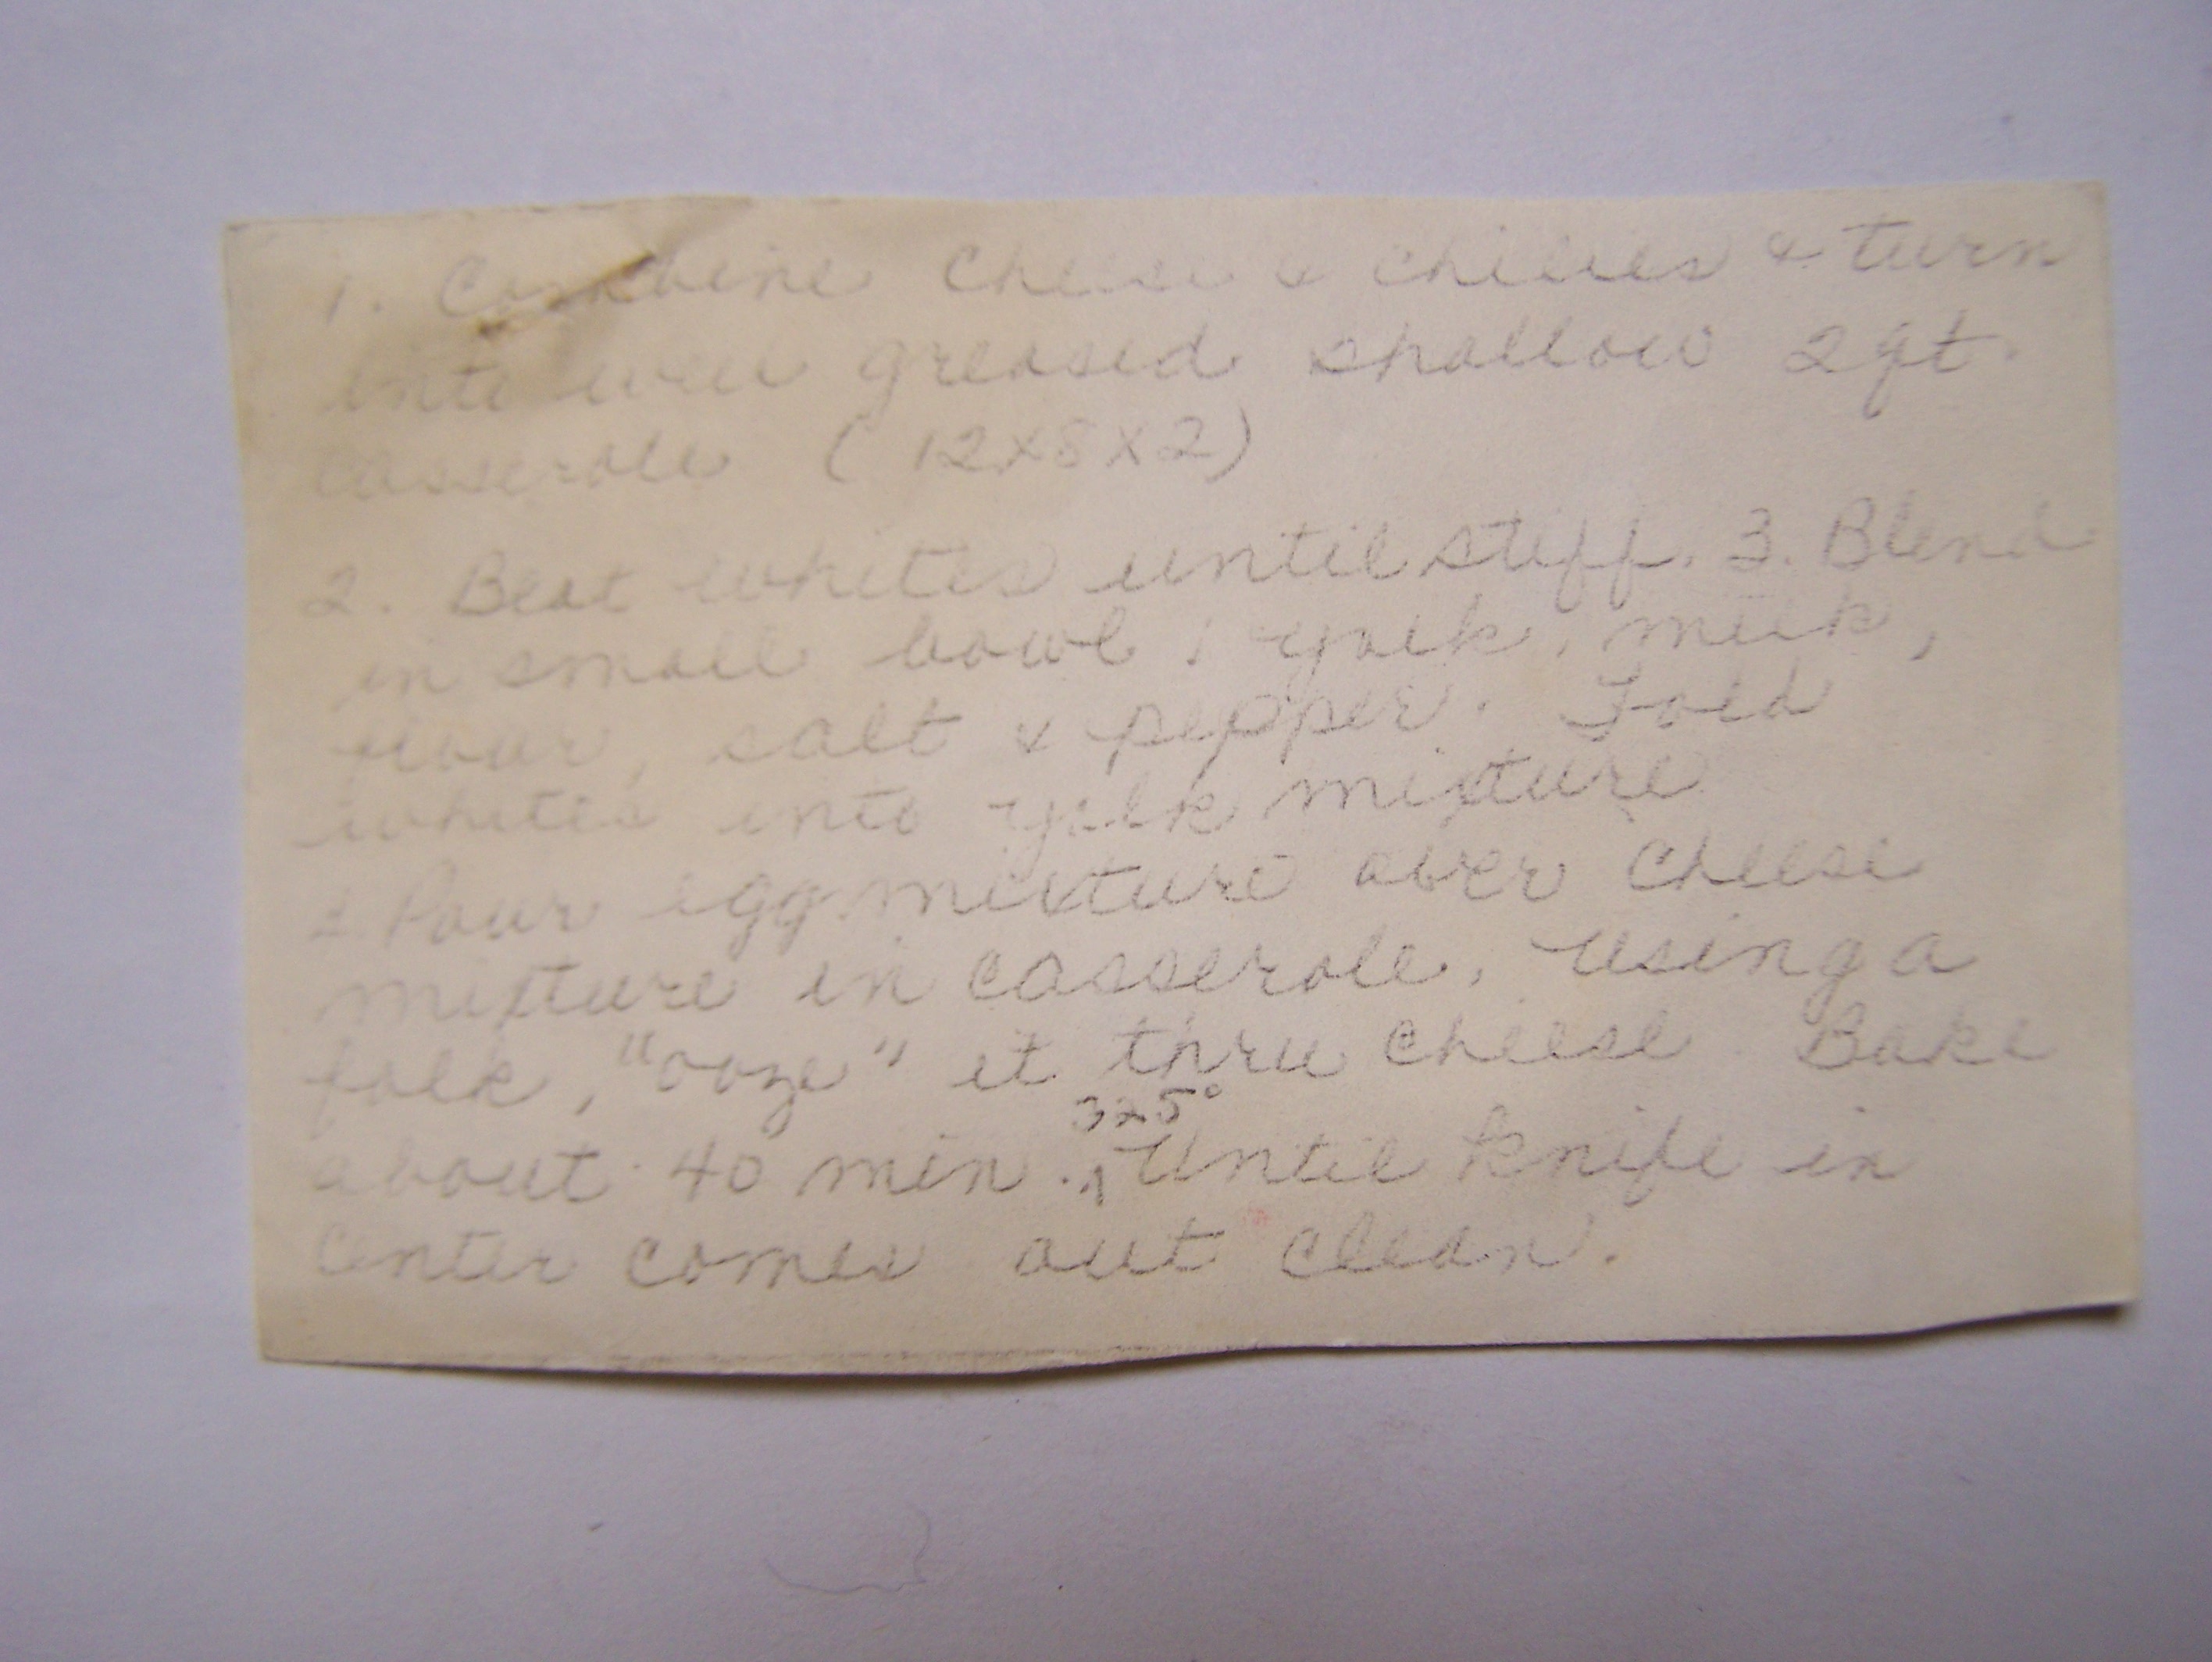 1. Combine Cheese & chilies & turn
into well greased shallow 2 qt.
casserole (12x8x2)
2. Beat whites until stiff. 3. Blend
in small bowl; yolk, milk,
flour, salt & pepper. Fold
whites into yolk mixture
Pour egg mixture over cheese
mixture in casserole, Using a
folk, "ooze" it thru cheese Bake
325°
about 40 min. Until knife in
Center comes out clean.